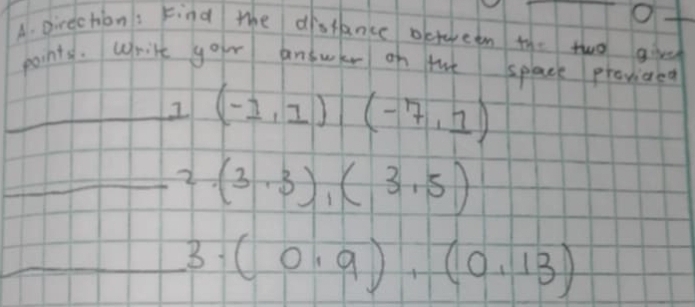 A. Direction: Find the distance between the two given
points. Write your answer on the space provided
1 (-1,1), (-7,1)
2.(3,3),(3,5)
3.(0,9),(0,13)